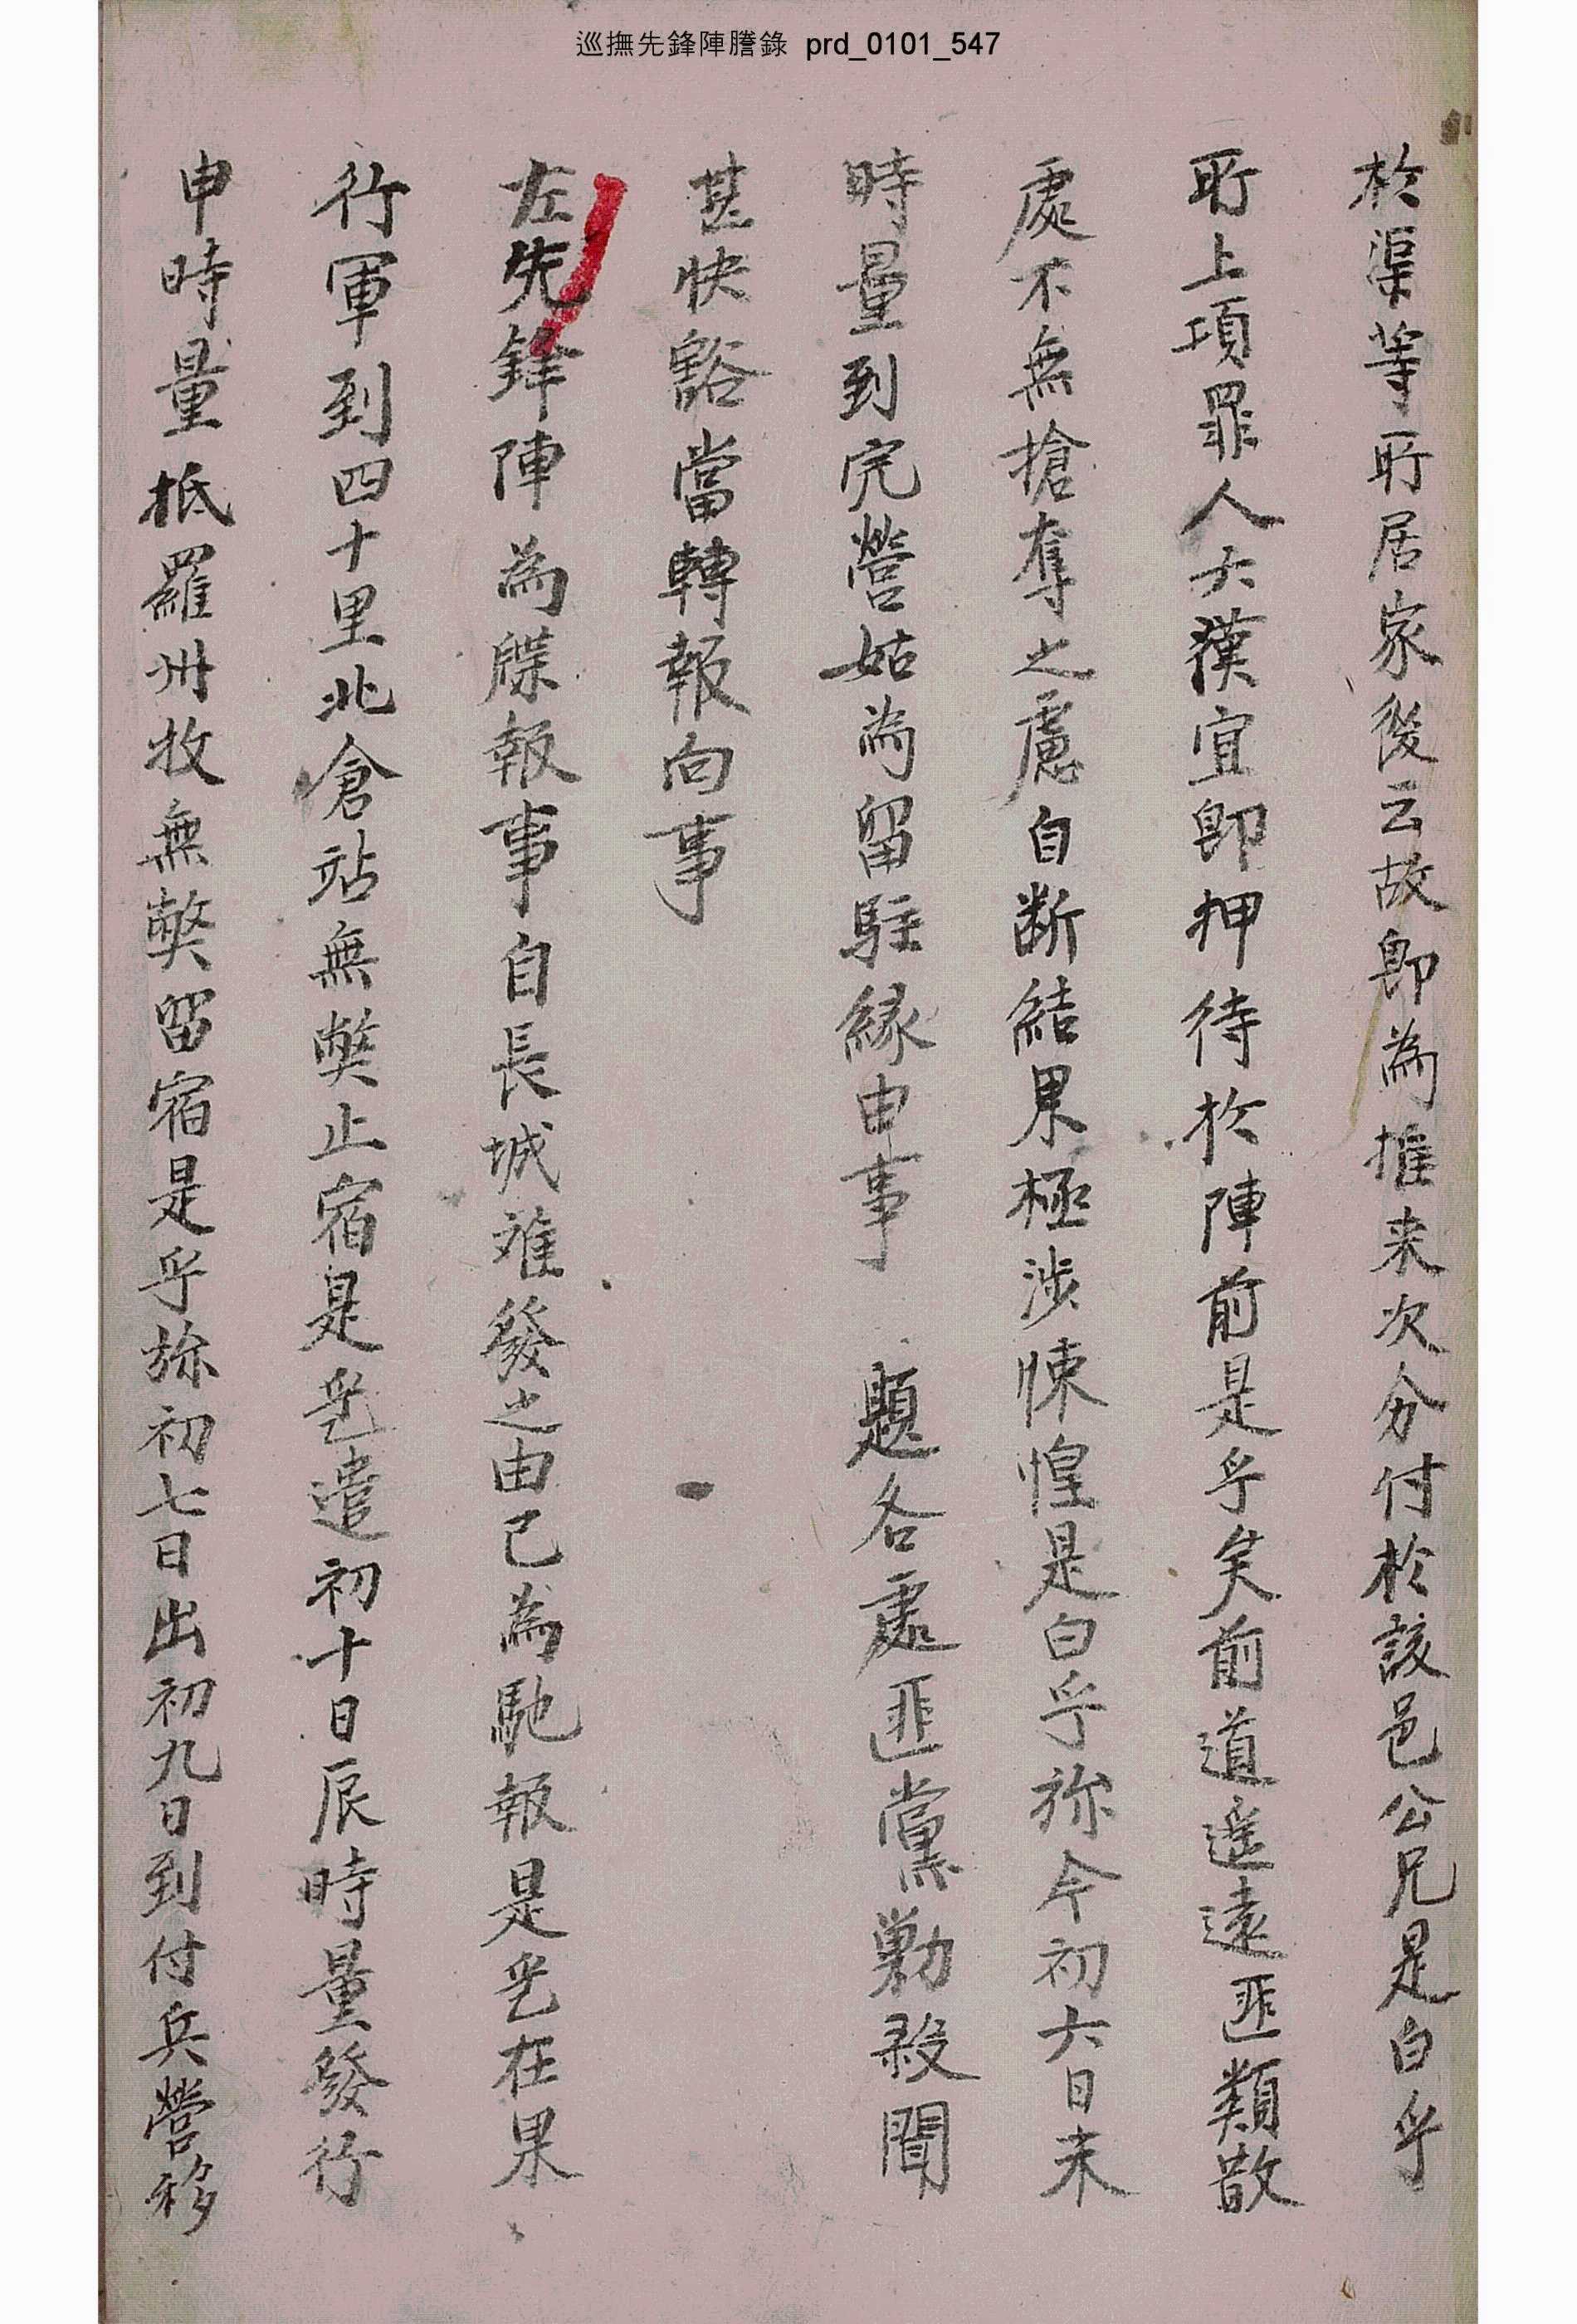 巡撫先鋒陣謄錄 prd_0101_547
於渠等所居家後云故卽為推来次分付於該邑公兄是白乎
所上項罪人大漢宜卽押待於陣前是乎矣前道遥遠匪類散
處不無搶奪之慮自断結果極涉悚惶是白乎旀今初六日未
時量到完營姑為留駐緣由事 題各處匪黨勦殺聞
甚快豁當轉報向事
左先鋒陣為牒報事自長城離發之由已為馳報是乎在果
行軍到四十里北倉站無獘止宿是乎遣初十日辰時量發行
申時量抵羅州牧無獘留宿是乎旀初七日出初九日到付兵營移